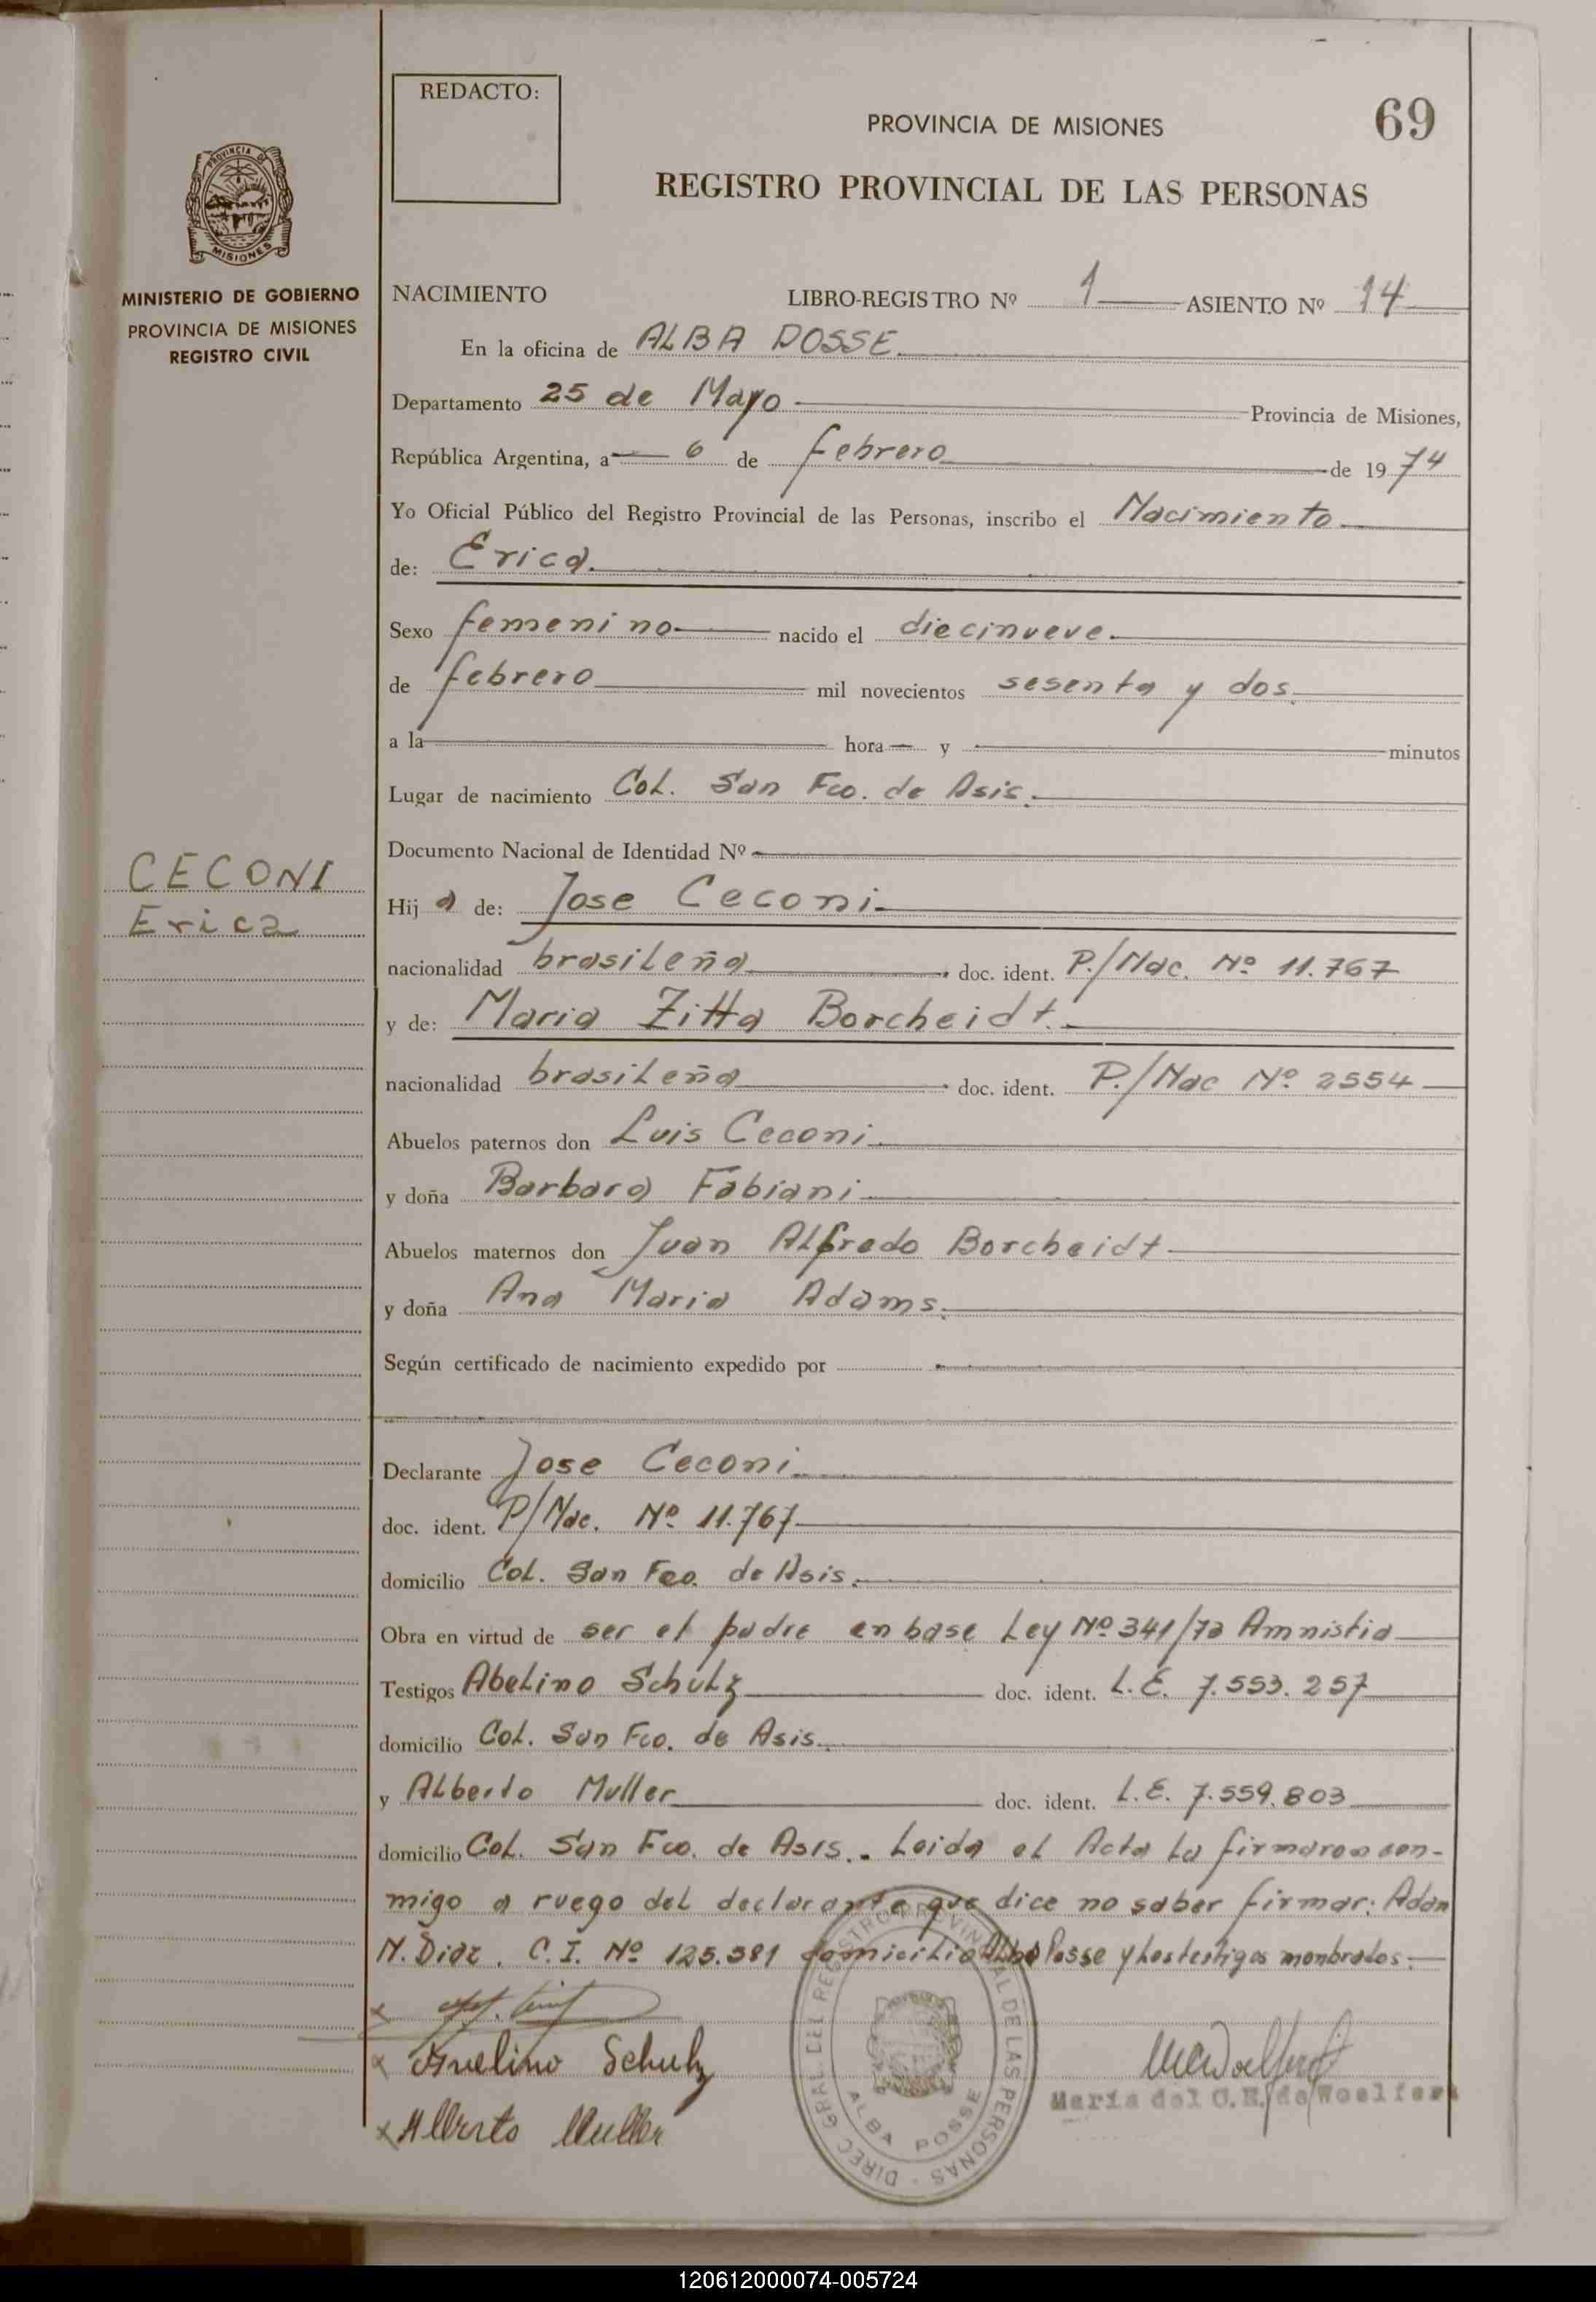 REDACTO:
PROVINCIA DE MISIONES
69
REGISTRO PROVINCIAL DE LAS PERSONAS
PROVINCIA DE
MISIONES
MINISTERIO DE GOBIERNO
PROVINCIA DE MISIONES
REGISTRO CIVIL
NACIMIENTO LIBRO-REGISTRO Nº 1 ASIENTO Nº 14
En la oficina de ALBA POSSE.
Departamento 25 de Mayo Provincia de Misiones,
República Argentina, a 6 de febrero de 1974
Yo Oficial Público del Registro Provincial de las Personas, inscribo el Nacimiento
de: Erica.
Sexo femenino nacido el diecinueve.
de febrero mil novecientos sesenta y dos.
a la hora y minutos
Lugar de nacimiento Col. San Fco. de Asis.
Documento Nacional de Identidad Nº
CECONI
Erica
Hij a de: Jose Ceconi
nacionalidad brasileña doc. ident. P./Nac. Nº 11.767
y de: Maria Zitta Borcheidt.
nacionalidad brasileña doc. ident. P./Nac Nº 2554
Abuelos paternos don Luis Ceconi
y doña Barbara Fabiani
Abuelos maternos don Juan Alfredo Borcheidt
y doña Ana Maria Adams.
Según certificado de nacimiento expedido por
Declarante Jose Ceconi
doc. ident. P/Nac. Nº 11.767
domicilio Col. San Fco. de Asis.
Obra en virtud de ser el padre en base Ley Nº 341/73 Amnistia
Testigos Abelino Schulz doc. ident. L.E. 7.553.257
domicilio Col. San Fco. de Asis.
y Alberto Muller doc. ident. L.E. 7.559.803
domicilio Col. San Fco. de Asis.. Leida el Acta la firmaron con-
migo a ruego del declarante que dice no saber firmar: Adan
N. Diaz. C.I. Nº 125.381 domicilio Alba Posse y los testigos nombrados.
x
x Avelino Schulz
x Alberto Muller
DIREC GRAL. DEL REGISTRO PROVINCIAL DE LAS PERSONAS -
ALBA POSSE
Maria del C.R. de Woelfert
120612000074-005724